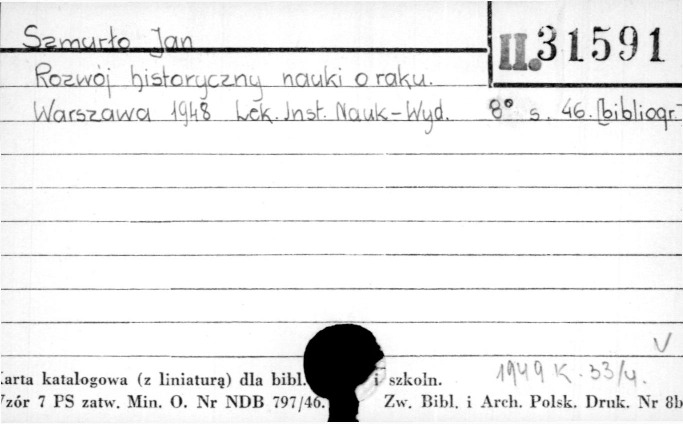 Szmurło Jan
II. 31591
Rozwój historyczny nauki o raku.
Warszawa 1948 Lek. Inst. Nauk-Wyd. 8° s. 46. [bibliogr.]
V
1949 K. 33/4.
Karta katalogowa (z liniaturą) dla bibl. i szkoln.
Wzór 7 PS zatw. Min. O. Nr NDB 797/46. Zw. Bibl. i Arch. Polsk. Druk. Nr 8b